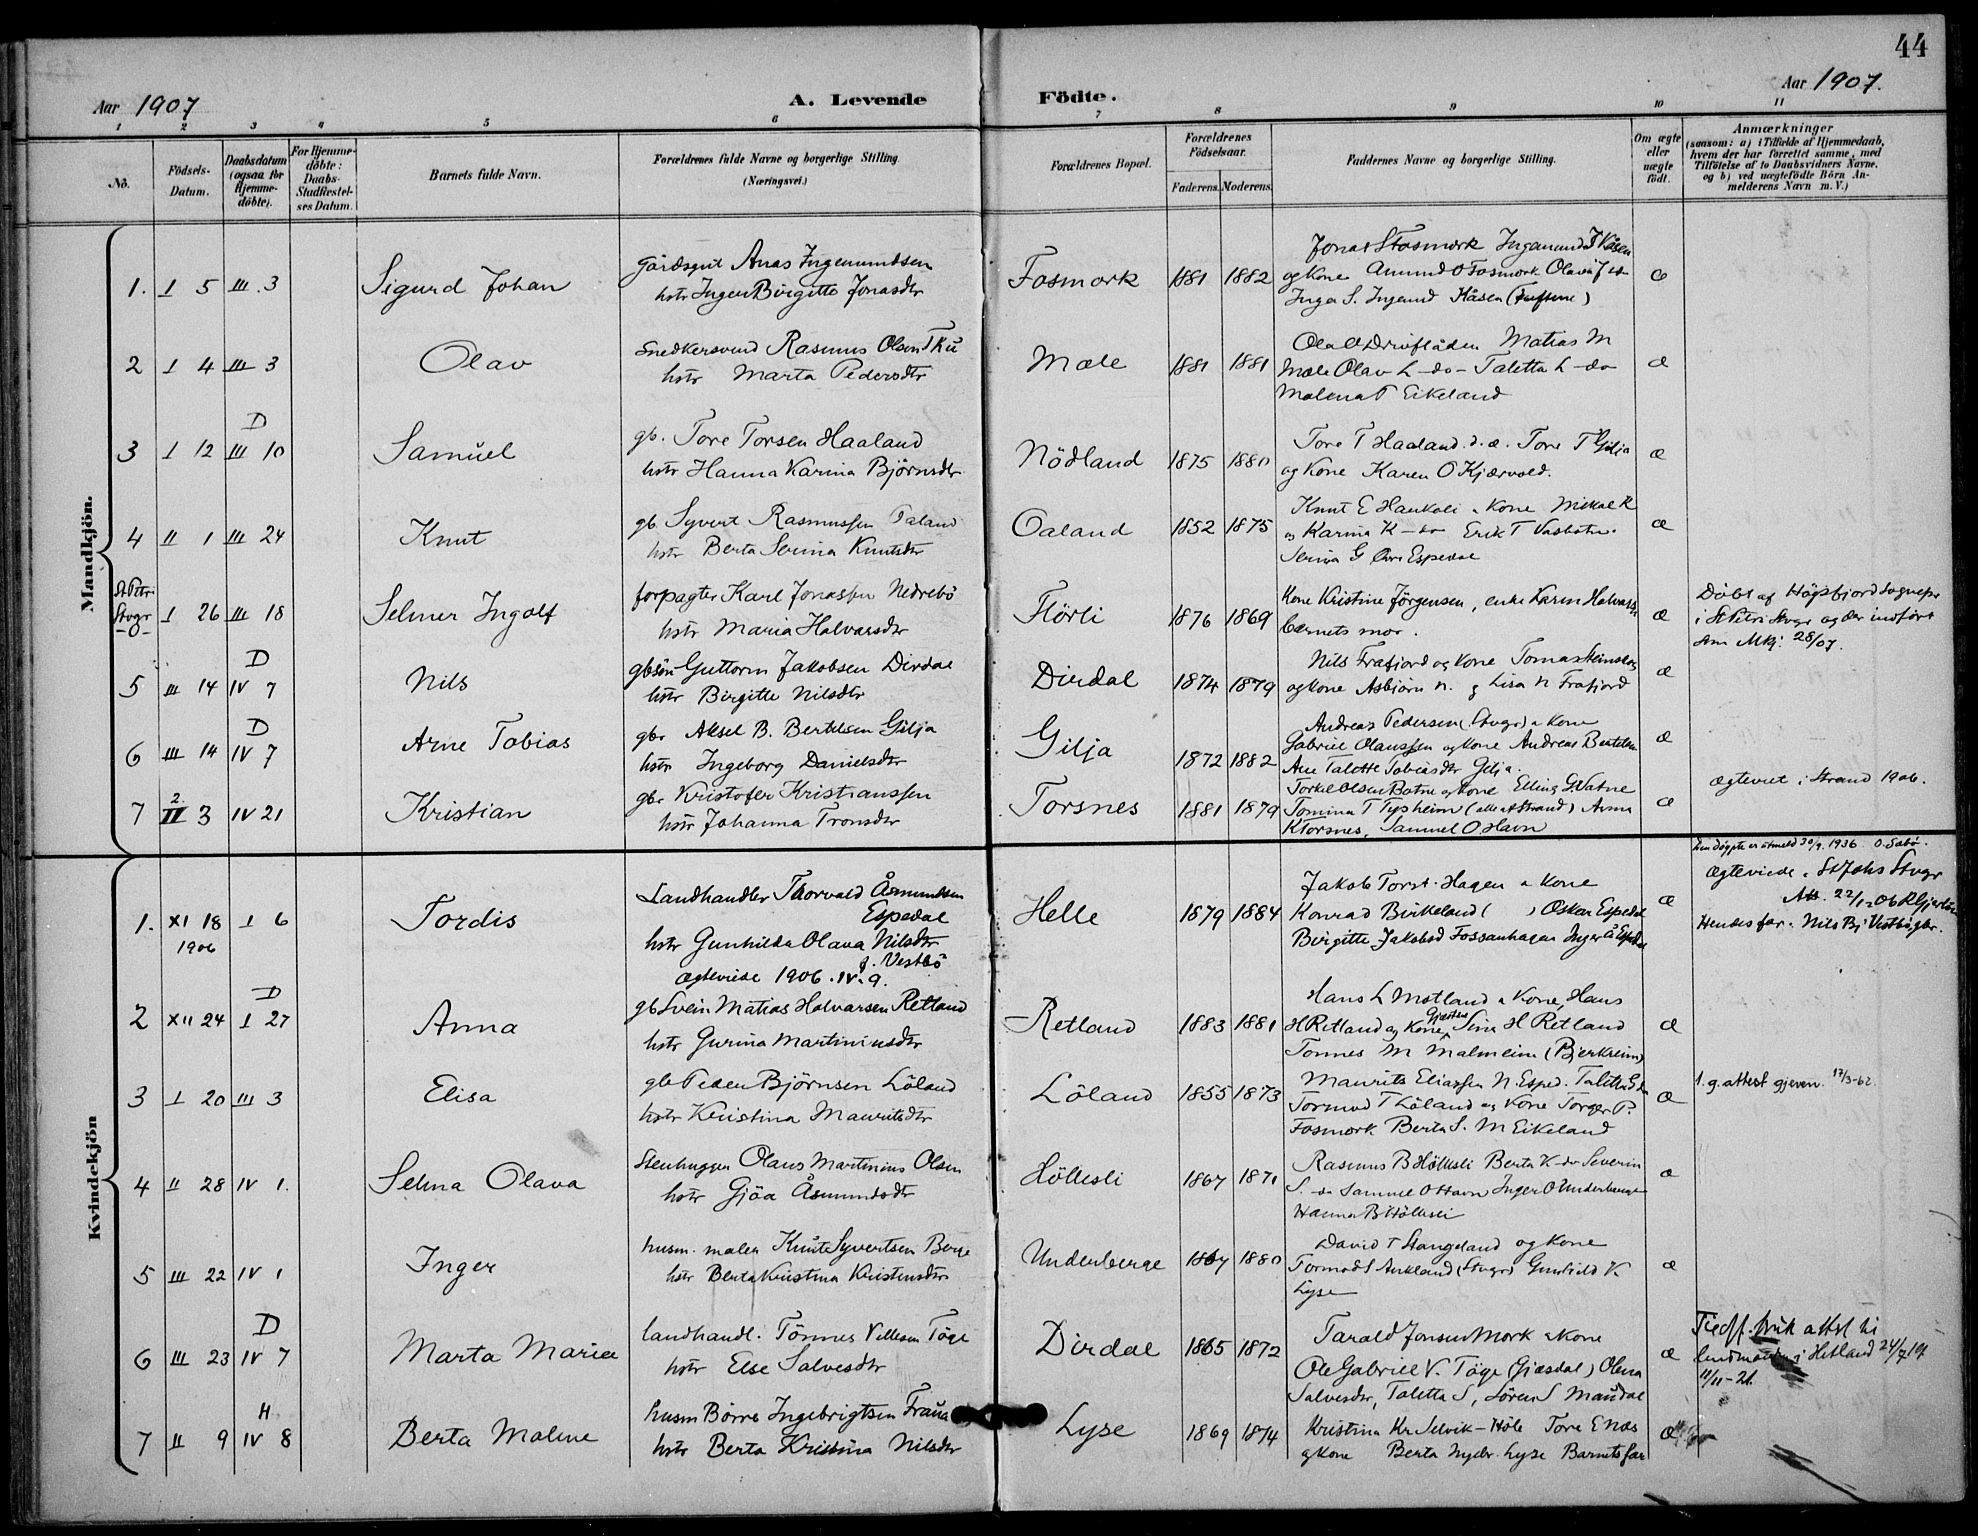 44
Aar 1907 A. Levende Födte. Aar 1907.
1 2 3 4 5 6 7 8 9 10 11
No. Födsels-Datum. Daabsdatum (ogsaa for Hjemme-döbte). For Hjemme-döbte: Daabs-Stadfæstel-ses Datum. Barnets fulde Navn. Forældrenes fulde Navne og borgerlige Stilling. (Næringsvei.) Forældrenes Bopæl. Forældrenes Födselsaar. Faderens. Moderens. Faddernes Navne og borgerlige Stilling. Om ægte eller uægte födt. Anmærkninger (saasom: a) i Tilfælde af Hjemmedaab, hvem der har forrettet samme, med Tilföielse af to Daabsvidners Navne, og b) ved uægtefödte Börn An-melderens Navn m. V.)
Mandkjön.
1. I 5 III 3 Sigurd Johan
Gårdsgut Anas Ingemundsen
hstr Inger Birgitte Jonasdtr
Fosmork 1881 1882
Jonas S Fosmork Ingemund
og kone Amund O Fosmork
Inga S. Ingemd Kåsen
æ
2 I 4 III 3 Olav
Snedkersvend Rasmus Olsen
hstr Marta Pedersdtr
Mæle 1881 1881
Matias M
Mæle Olav L -do- Taletta L -do
Malena T Eikeland
æ
3 I 12 D III 10 Samuel
gb. Tore Torsen Haaland
hstr Hanna Karina Björnsdtr
Nödland 1875 1880
Tore T Haaland d.æ. Tore T Gilja
og kone Karen O Kjærvold.
æ
4 II 1 III 24 Knut
gb Syvert Rasmussen
hstr Berta Serina Knutsdtr
Oaland 1852 1875
Knut E Haukali & kone Mikal K
og Karina K -do Erik T
Serina G Övre Espedal
æ
St Petri Stvgr -0- I 26 III 18 Selmer Ingolf
forpagter Karl Jonassen Nedrebö
hstr Maria Halvarsdtr
Flörli 1876 1869
Kone Kristine Jörgensen, enke Karen
barnets mor.
æ
Döbt af Högsfjord Sognepr
i St Petri Stvgr og der indfört
som Mkj: 28/07.
5 III 14 D IV 7 Nils
gbsön Guttorm Jakobsen Dirdal
hstr Birgitte Nilsdtr
Dirdal 1874 1879
Nils Frafjord og kone Tomas
og kone Asbjörn N. og Lisa N Frafjord
æ
6 III 14 D IV 7 Arne Tobias
gbr Aksel B. Bertelsen Gilja
hstr Ingeborg Danielsdtr
Gilja 1872 1882
Andreas Pedersen (Stvgr) & kone
Gabriel Olaussen og kone Andreas Bertelsen
Ane Talette Tobiasdtr Gilja.
æ
7 II 3 IV 21 Kristian
gbr Kristofer Kristianssen
hstr Johanna Tronsdtr
Torsnes 1881 1879
Torkel Olsen Botne og kone Elling G Vatne
Tomina T Tysheim (alle af Strand) Anna
K Torsnes, Samuel O Havn
æ
Ægteviet i Strand 1906.
Kvindekjön
1. XI 18 1906 I 6 Tordis
Landhandler Thorvald Åsmundsen
Espedal
hstr Gunhilda Olava Nilsdtr
f. Vestbö
ægteviede 1906. IV. 9.
Helle 1879 1884
Jakob Torst. Hagen & kone
Konrad Birkeland ( ) Oskar Espedal
Birgitte Jakobsd Fossanhagen Inger Å Espedal
æ
Den döpte er utmeld 30/9. 1936. O. Sabö.
Ægteviede i St Johs Stvgr
Hendes far. Nils Bj Vestbö, gbr.
2 XII 24 D I 27 Anna
gb Svein Matias Halvarsen Retland
hstr Gurina Martiniusdtr
Retland 1883 1881
Hans L Motland & kone, Hans
H Retland og kone, Sina H Retland
Tönnes M Malmeim (Bjerkreim)
æ
3 I 20 III 3 Elisa
gb Peder Björnsen Löland
hstr Kristina Mauritsdtr
Löland 1855 1873
Maurits Eliassen N. Esped.
Tormod T Löland og kone Torger P.
Fosmork Berta S. M Eikeland
æ
1. g. attest gjeven. 17/3-62.
4 II 28 IV 1. Selma Olava
Stenhugger Olaus Martinius Olsen
hstr Gjöa Åsmundsdtr
Höllesli 1867 1871
Rasmus B Höllesli Berta K -do Severin
S. -do Samuel O Havn Inger O Underberge
Hanna B Höllesli
æ
5 III 22 IV 1 Inger
husm. maler Knut Syvertsen Berge
hstr Berta Kristina Kristensdtr
Underberge 1867 1880
David T Stangeland og kone
Tormod S Aukland (Stvgr) Gunhild K.
Lyse
æ
6 III 23 D IV 7 Marta Maria
landhandl. Tönnes Villesen Töge
hstr Else Salvesdtr
Dirdal 1865 1872
Tarald Jonsen Mork & kone
Ole Gabriel V. Töge (Gjesdal) Olena
Salvesdtr, Taletta S, Sören S Maudal
æ
attst ti
i Hetland 24/7 19
11/11-21.
7 II 9 H IV 8 Berta Maline
husm Börre Ingebrigtsen
hstr Berta Kristina Nilsdtr
Lyse 1869 1874
Kristina Kr. Selvik - Höle Tore E Næs
og kone Berta Lyse Barnets far
æ